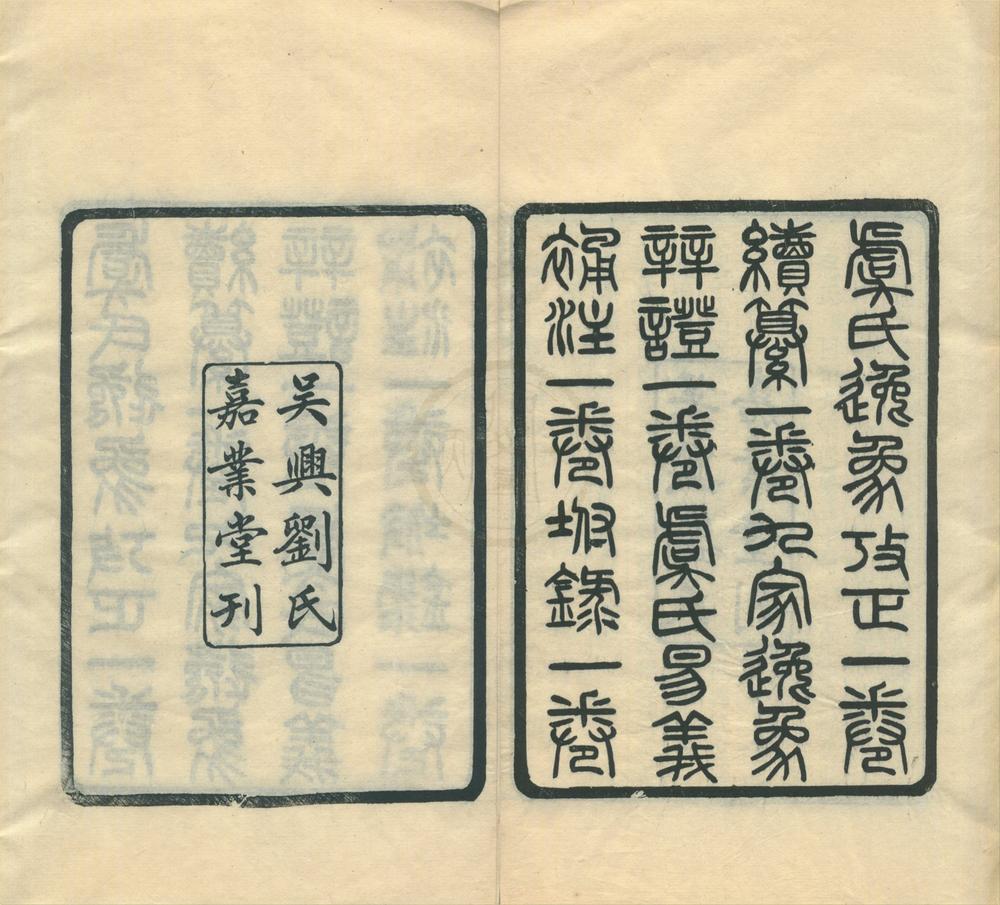 虞氏逸象攷正一卷
續纂一卷九家逸象
辩證一卷虞氏易義
補注一卷坿錄一卷
吴興劉氏
嘉業堂刊